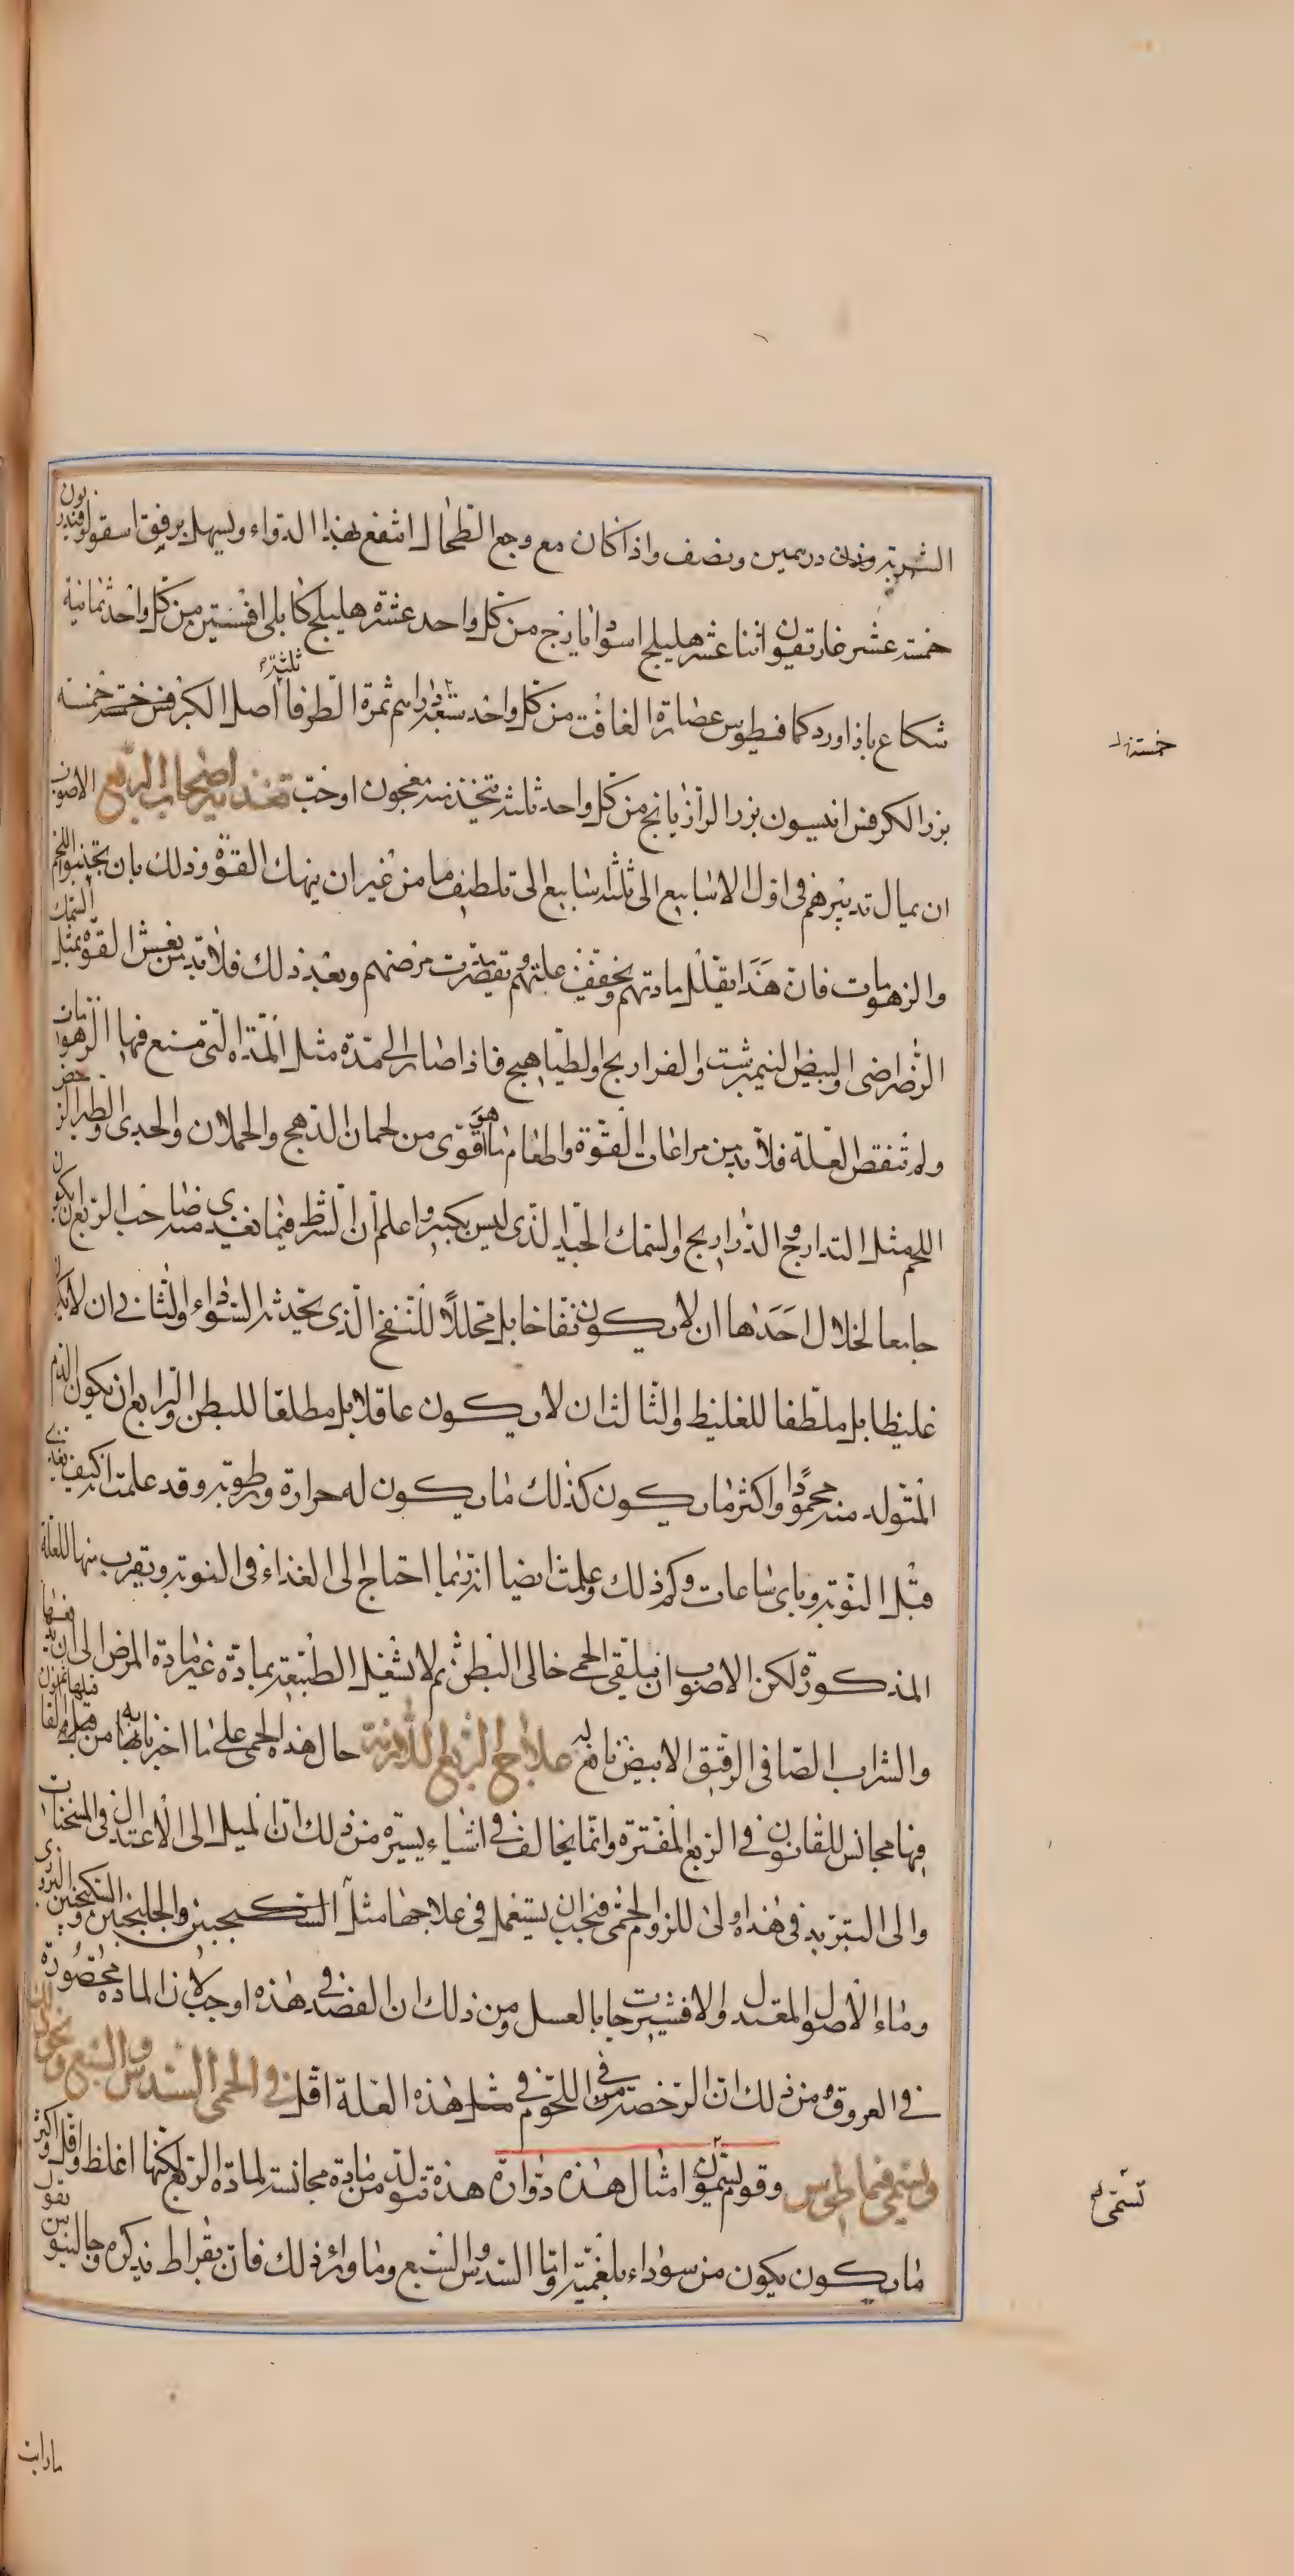 الشربة وزن درهمين ونصف واذا كان مع وجع الطحال انتفع بهذا الدواء ويسهل برفق اسقولوقندريون
خمسة عشر غاريقون اثنا عشر هليلج اسود ايارج من كل واحد عشرة هليلج كابلى افسنتين من كل واحد ثمانية
شكاع باذاورد كمافيطوس عصارة الغافت من كل واحد سبعة دراهم ثمرة الطرفا ثلثة اصل الكرفس خمسة خمسة
خمسة
بزر الكرفس انيسون بزر الرازيانج من كل واحد ثلثة يتخذ منه معجون او حب تغذية اصحاب الربع الاصوب
ان يمال تدبيرهم فى اول الاسابيع الى ثلثة اسابيع الى تلطيف ما من غير ان ينهك القوة وذلك بان يجنبوا اللحم
والزهومات فان هذا يقلل مادتهم ويخفف علتهم وتقصر مدت مرضهم وبعد ذلك فلا بد من نعش القوة بمثل السمك
الرضراضى والبيض النيمبرشت والفراريج والطياهيج فاذا صار الى مدة مثل المدة التى تمنع فيها الزهومات
ولم تنقص العلة فلا بد من مراعات القوة واطعام ما هو اقوى من لحمان الدهج والحملان والجدى والطير الرخص
اللحم مثل التدارج والذراريج والسمك الجيد الذى ليس بكبير واعلم ان الشرط فيما يغذى منه صاحب الربع ان يكون
جامعا لخلال احدها ان لا يكون نفاخا بل محللا للنفخ الذى يحدثه السوداء والثانى ان لا يكون
غليظا بل ملطفا للغليظ والثالث ان لا يكون عاقلا بل مطلقا للبطن والرابع ان يكون الدم
المتولد منه محمودا واكثر ما يكون كذلك ما يكون له حرارة ورطوبة وقد علمت انه كيف يغذى
قبل النوبة وباى ساعات وكم ذلك وعلمت ايضا انه ربما احتاج الى الغذاء فى النوبة وبقرب منها للعلة
المذكورة لكن الاصوب ان يلقى الحمى خالى البطن ثم لا يشغل الطبيعة بمادة غير مادة المرض الى ان يدفعها
والشراب الصافى الرقيق الابيض نافع له علاج الربع اللازمة حال هذه الحمى على ما اخبرنا به من قبل والقانون
فيها مجانس للقانون فى الربع المفترة وانما يخالف فى اشياء يسيرة من ذلك ان الميل الى الاعتدال فى المسخنات
والى التبريد فى هذا اولى للزوم الحمى فيجب ان يستعمل فى علاجها مثل السكنجبين والجلنجبين السكنجبين البزورى
وماء الاصول المعتدل والافشيرجات بالعسل ومن ذلك ان الفصد فى هذه اوجب لان المادة محصورة
فى العروق ومن ذلك ان الرخصة فى اللحوم فى مثل هذه العلة اقل فى الحمى السدس والسبع ونحو ذلك
وتسمى فيماطوس وقوم يسمون امثال هذه دوارة هذه تتولد من مادة مجانسة لمادة الربع لكنها اغلظ واقل واكثر
تسمى
ما يكون يكون من سوداء بلغمية واما السدس والسبع وما وراء ذلك فان بقراط يذكره وجالينوس يقول
ما رايت